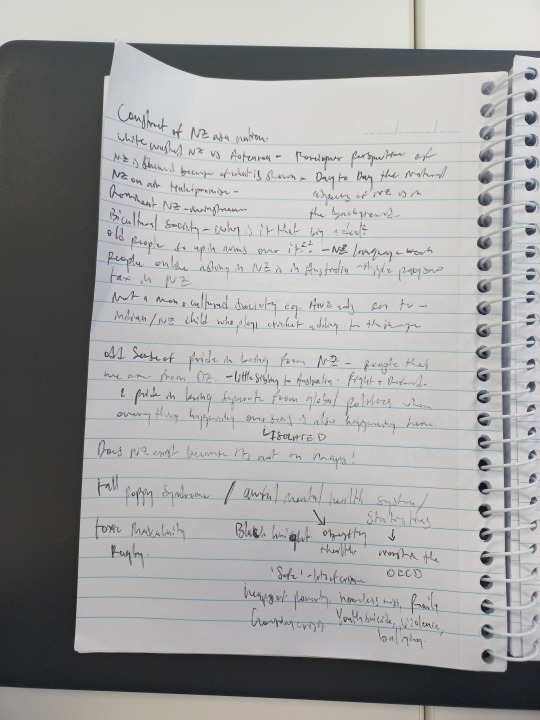 Construct of NZ as a nation.
White washed NZ vs Aotearoa - Foreigner perspective of
NZ is skewed because of what is shown - Day to Day the natural
NZ on air - aspects of NZ is in
NZ - mainstream the background
Bicultural Society - why is it that big a deal
old people so up in arms over it?? - NZ language week
People online asking is NZ is in Australia - Higher
tax in NZ
Not a mono cultured society eg. ANZ ads on tv -
Indian/NZ child who plays cricket adding to the
Sense of pride in being from NZ - people that
from OZ. - little sibling to Australia -
& pride in being separate from global politics when
everything happening overseas is also happening here
↳ ISOLATED
Does NZ exist because its not on maps!
Tall poppy Syndrome / awful mental health system /
Statistics
toxic Masculinity
Rugby.
worst in the
OECD
'Safe' - lots of crime
poverty, homelessness, Family
Housing crisis Youth suicide, violence,
bullying.